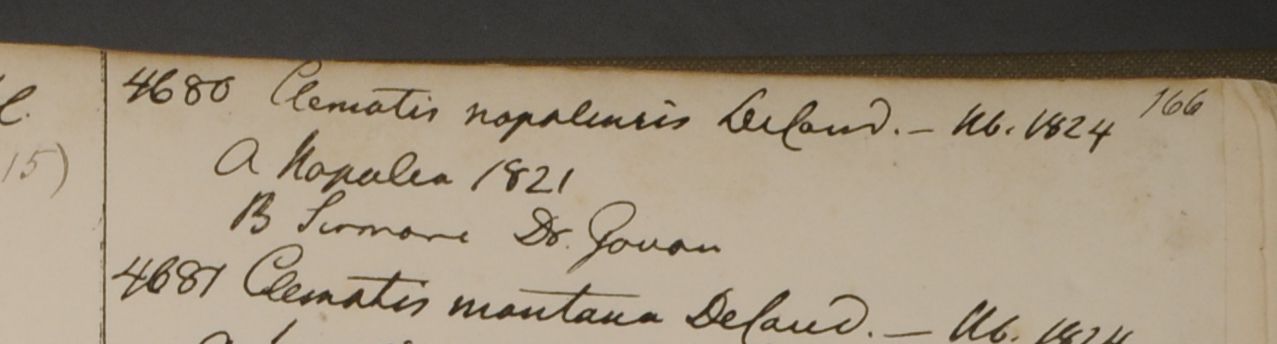 l.
15)
166
4680 Clematis napalensis DeCand. — Hb. 1824
A Napalea 1821
B Sirmore Dr. Govan
4681 Clematis montana DeCand. — Hb. 1824